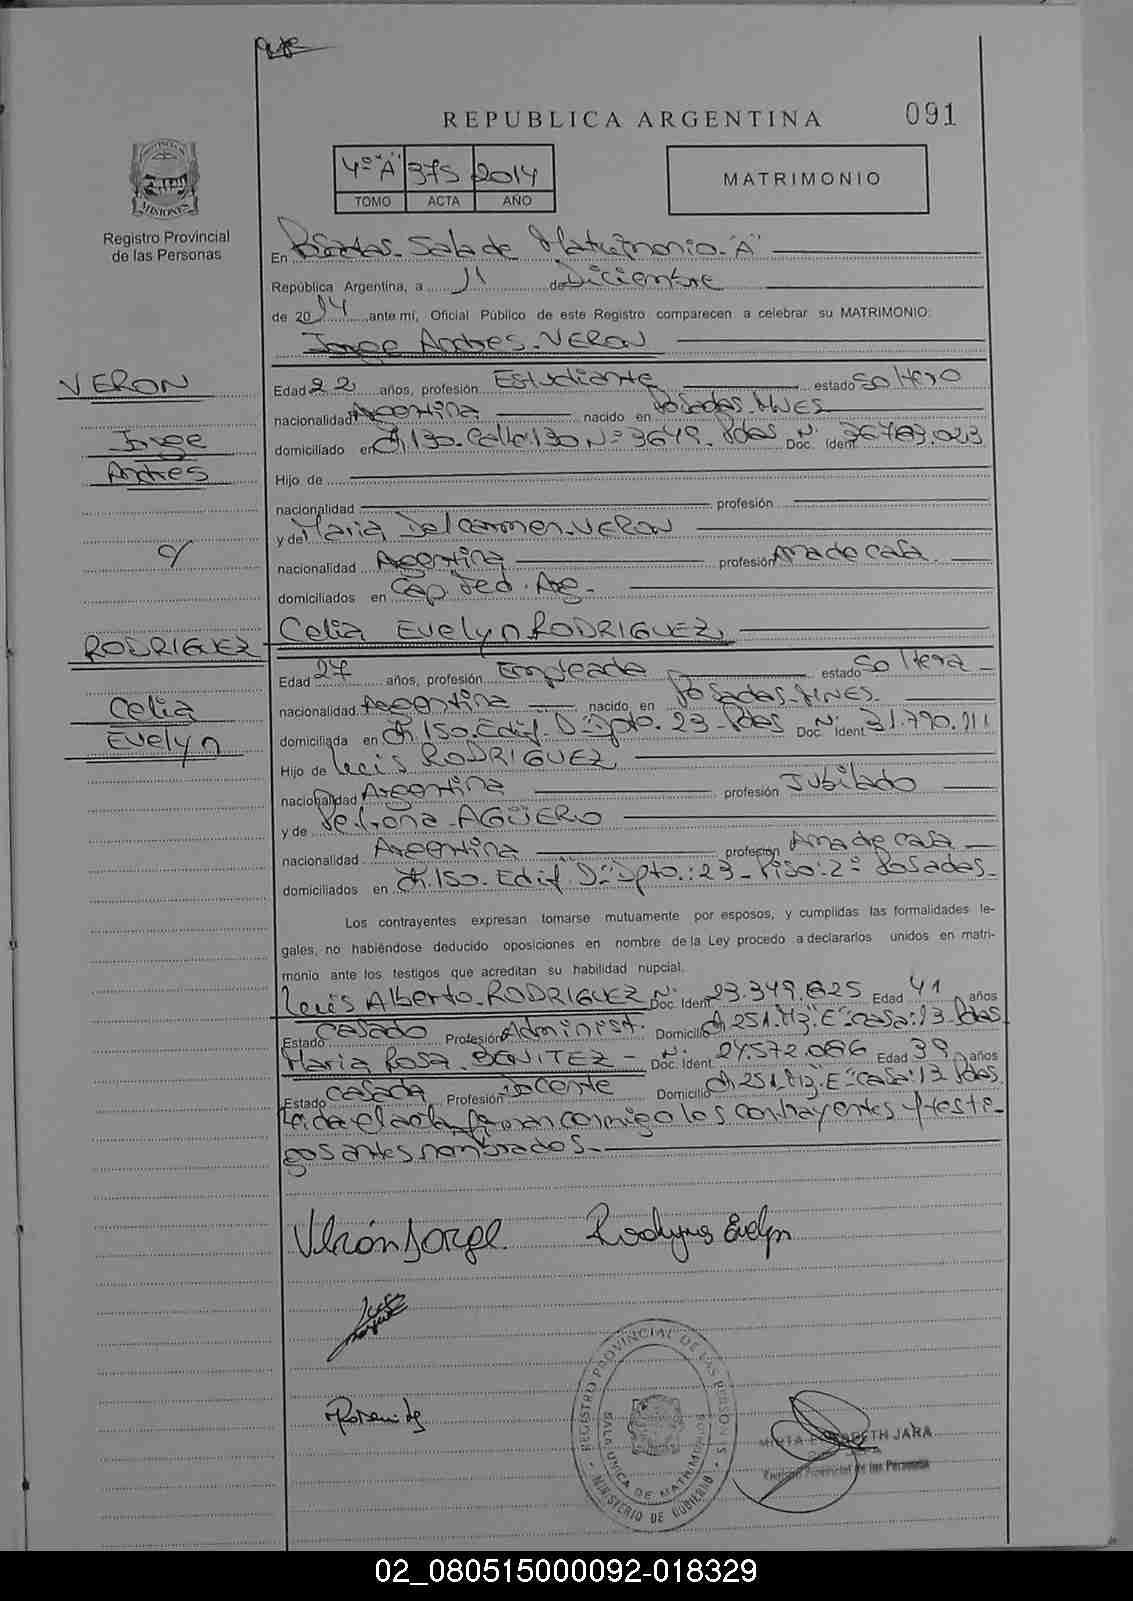 REPUBLICA ARGENTINA 091
4º "A" 375 2014
TOMO ACTA AÑO
MATRIMONIO
PROVINCIA DE MISIONES
Registro Provincial
de las Personas
En Posadas Sala de Matrimonio "A"
República Argentina, a 11 de Diciembre
de 2014 ante mí, Oficial Público de este Registro comparecen a celebrar su MATRIMONIO:
Jorge Andres VERON
VERON
Jorge
Andres
Edad 22 años, profesión Estudiante estado soltero
nacionalidad Argentina nacido en Posadas Mnes
domiciliado en Ch. 130. Calle 130 Nº 3649. Pdas Doc. Ident. Nº 36.783.023
Hijo de
nacionalidad profesión
y de Maria Del Carmen VERON
nacionalidad Argentina profesión Ama de casa
domiciliados en Cap. Fed. Arg.
c/
RODRIGUEZ
Celia
Evelyn
Celia Evelyn RODRIGUEZ
Edad 27 años, profesión Empleada estado soltera
nacionalidad Argentina nacido en Posadas Mnes.
domiciliada en Ch. 150. Edif. D. Dpto. 23 Pdas Doc. Ident. Nº 31.790.911
Hijo de Luis RODRIGUEZ
nacionalidad Argentina profesión Jubilado
y de Petrona AGÜERO
nacionalidad Argentina profesión Ama de casa
domiciliados en Ch. 150. Edif. D. Dpto.: 23 Piso: 2º Posadas
Los contrayentes expresan tomarse mutuamente por esposos, y cumplidas las formalidades le-
gales, no habiéndose deducido oposiciones en nombre de la Ley procedo a declararlos unidos en matri-
monio ante los testigos que acreditan su habilidad nupcial.
Luis Alberto RODRIGUEZ Doc. Ident. Nº 23.349.825 Edad 41 años
Estado casado Profesión Administ. Domicilio Ch 251. Mz. "E" casa: 13 Pdas
Maria Rosa BENITEZ Doc. Ident. Nº 24.572.086 Edad 39 años
Estado casada Profesión Docente Domicilio Ch 251. Mz. "E" casa: 13 Pdas
Leida el acta, firman conmigo los contrayentes y testi-
gos antes nombrados.
Verón Jorge Evelyn
REGISTRO PROVINCIAL DE LAS PERSONAS
SALA UNICA DE MATRIMONIOS
MINISTERIO DE GOBIERNO
MIRTA ELISABETH JARA
Registro Provincial de las Personas
02_080515000092-018329